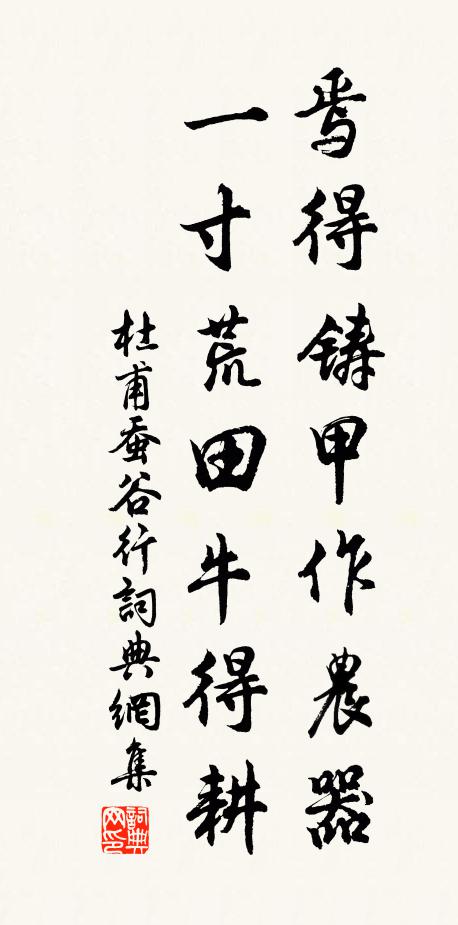 焉得鑄甲作農器
一寸荒田牛得耕
杜甫蚕谷行詞典網集
詞典网印